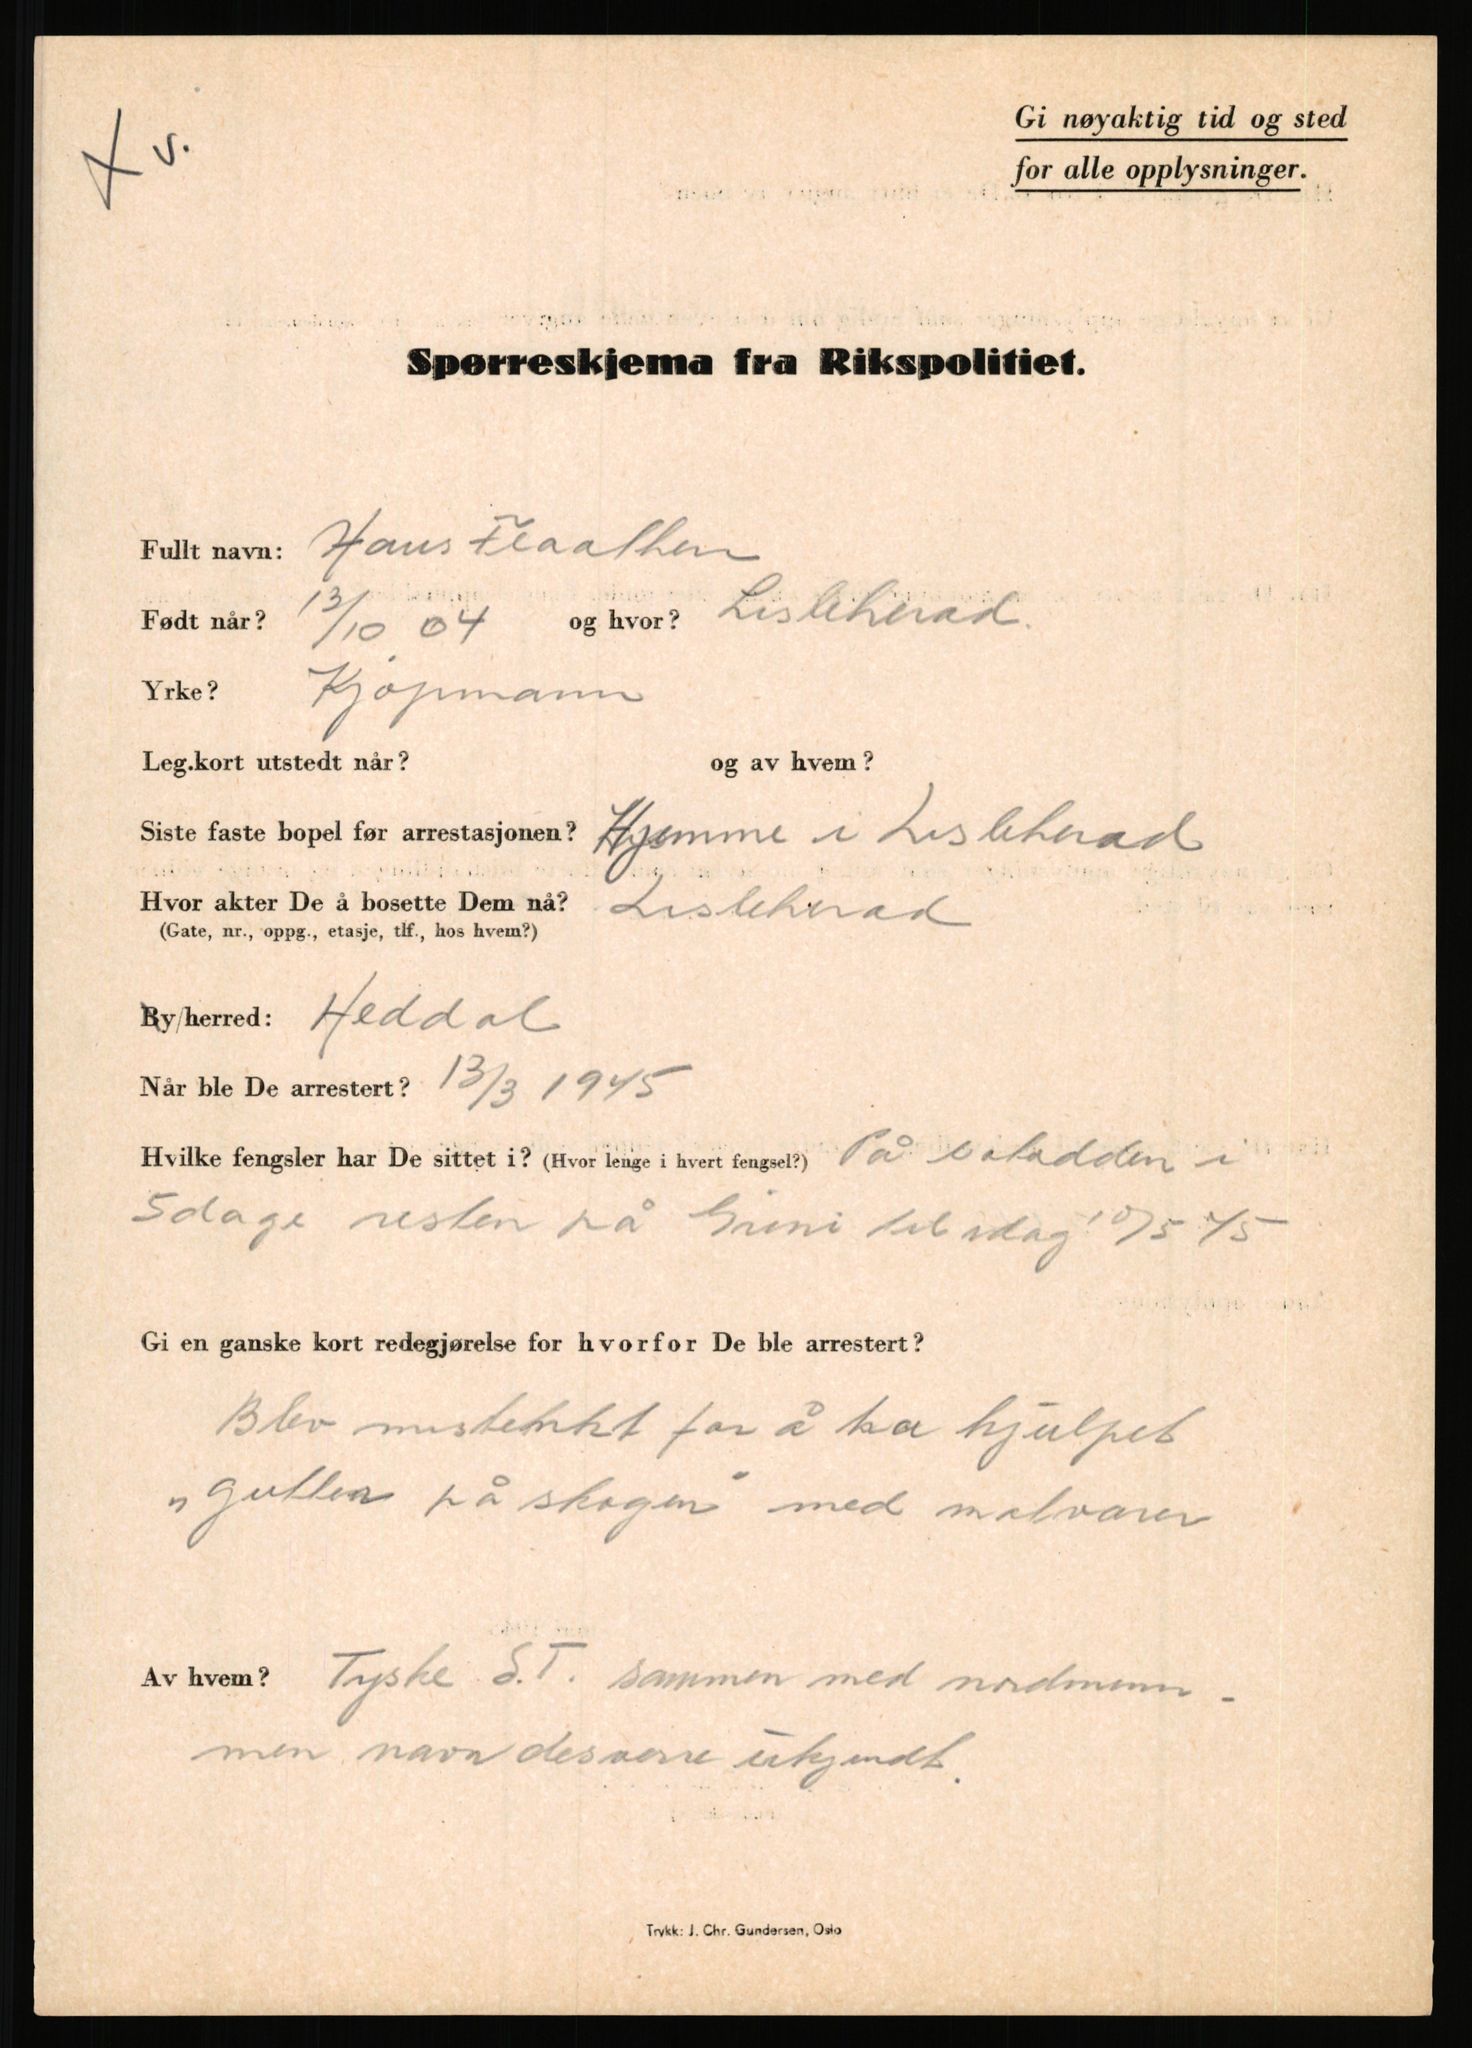 X v.
Gi nøyaktig tid og sted
for alle opplysninger.
Spørreskjema fra Rikspolitiet.
Fullt navn: Hans Flaathen
Født når? 13/10 04 og hvor? Lisleherad.
Yrke? Kjøpmann
Leg.kort utstedt når? og av hvem?
Siste faste bopel før arrestasjonen? Hjemme i Lisleherad
Hvor akter De å bosette Dem nå? Lisleherad
(Gate, nr., oppg., etasje, tlf., hos hvem?)
By/herred: Heddal
Når ble De arrestert? 13/3 1945
Hvilke fengsler har De sittet i? (Hvor lenge i hvert fengsel?) På i
5 dage resten på Grini til idag 10/5 45
Gi en ganske kort redegjørelse for hvorfor De ble arrestert?
Blev mistenkt for å ha hjulpet
„Gutten på skogen" med matvarer
Av hvem? Tyske S.T. sammen med nordmenn -
men navn desverre ukjendt.
Trykk: J. Chr. Gundersen, Oslo